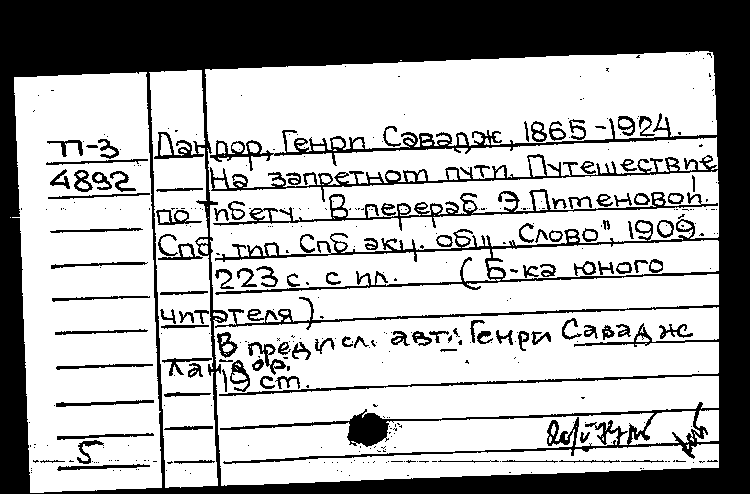 П-3 Ландор, Генри Савадж, 1865-1924.
4892 На запретном пути. Путешествие
по Тибету. В перераб. Э.Пименовой.
Спб., тип. Спб. акц. общ. „Слово", 1909.
223 с. с ил. (Б-ка юного
читателя).
В предисл. авт.: Генри Савадж
Ландор.
19 см.
5